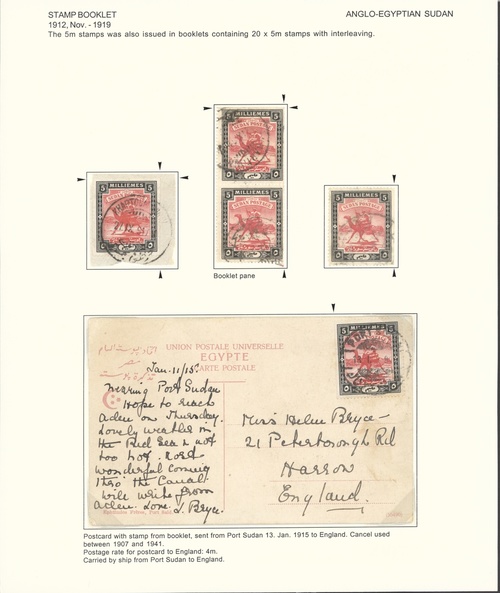 STAMP BOOKLET
ANGLO-EGYPTIAN SUDAN
1912, Nov. - 1919
The 5m stamps was also issued in booklets containing 20 x 5m stamps with interleaving.
5 MILLIEMES 5
5 MILLIEMES 5
5 MILLIEMES 5
5 MILLIEMES 5
Booklet pane
UNION POSTALE UNIVERSELLE
EGYPTE
CARTE POSTALE
Jan. 11/15.
Nearing Port Sudan
Hope to reach
Aden on Thursday.
Lovely weather in
the Red Sea & not
too hot. Most
wonderful coming
thro' the Canal.
Will write from
Aden. Love. J. Bryce.
Miss Helen Bryce
21 Peterborough Rd
Harrow
England.
Postcard with stamp from booklet, sent from Port Sudan 13. Jan. 1915 to England. Cancel used
between 1907 and 1941.
Postage rate for postcard to England: 4m.
Carried by ship from Port Sudan to England.